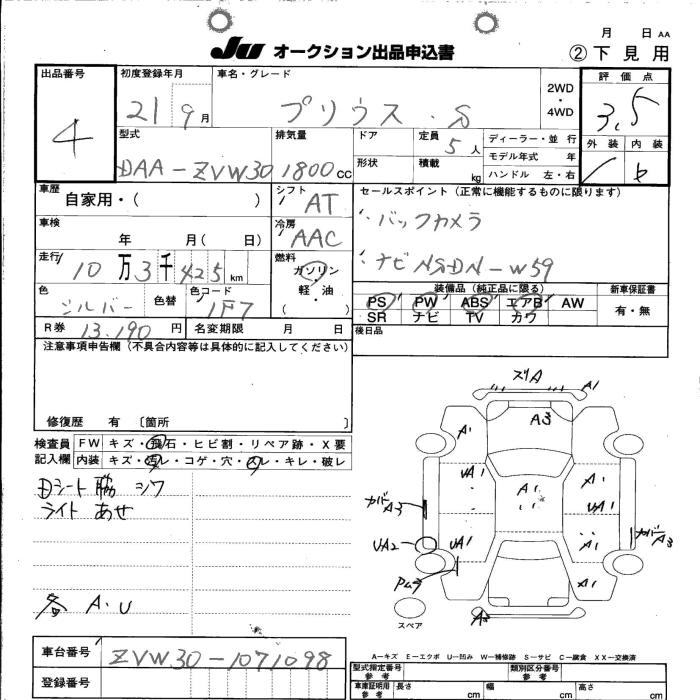 月 日 AA
JU オークション出品申込書
②下見用
出品番号 4
初度登録年月 21 9月
車名・グレード プリウス・S
2WD・4WD
評価点 3.5
型式 DAA-ZVW30
排気量 1800cc
ドア
定員 5人
ディーラー・並行
形状
積載 kg
モデル年式 年
ハンドル 左・右
外装 内装 b
車歴 自家用・( )
シフト AT
セールスポイント(正常に機能するものに限ります)
車検 年 月( 日)
冷房 AAC
・バックカメラ
走行 10万3千425km
燃料 ガソリン 軽・油 ( )
・ナビ NSDN-W59
色 シルバー 色替
色コード 1F7
装備品(純正品に限る)
新車保証書
PS PW ABS エアB AW
有・無
SR ナビ TV カワ
R券 13,190円
名変期限 月 日
後日品
注意事項申告欄(不具合内容等は具体的に記入してください)
修復歴 有 〔箇所 〕
検査員記入欄
FW キズ・飛石・ヒビ割・リペア跡・X要
内装 キズ・汚レ・コゲ・穴・スレ・キレ・破レ
Dシート脇 シワ
ライト あせ
各 A.U
ズリA
A1
A3
A1
UA1
A1
A1
カバーA3
UA1
UA2
UA1
A1
カバーA3
Pムラ
A1
スペア
A…キズ E…エクボ U…凹み W…補修跡 S…サビ C…腐食 XX…交換済
車台番号 ZVW30-1071098
登録番号
型式指定番号 参考
類別区分番号 参考
車庫証明用 参考
長さ cm
幅 cm
高さ cm